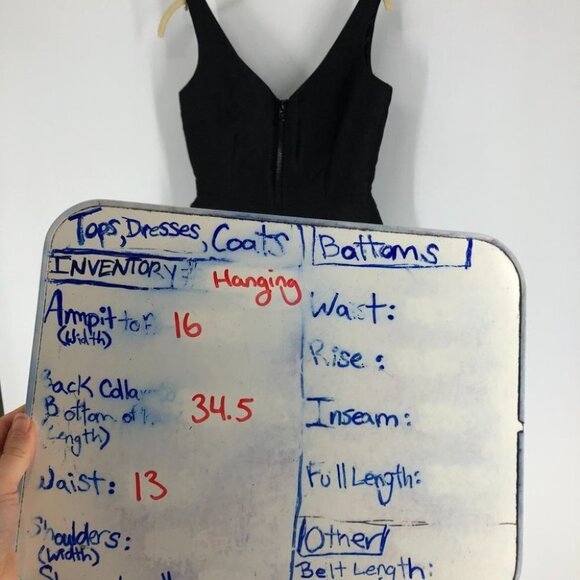 Tops, Dresses, Coats
INVENTORY#
Hanging
Armpit to
(Width)
16
Back Colla
Bottom of
(Length)
34.5
Waist: 13
Shoulders:
(Width)
Bottoms
Waist:
Rise:
Inseam:
Full Length:
Other
Belt Length: